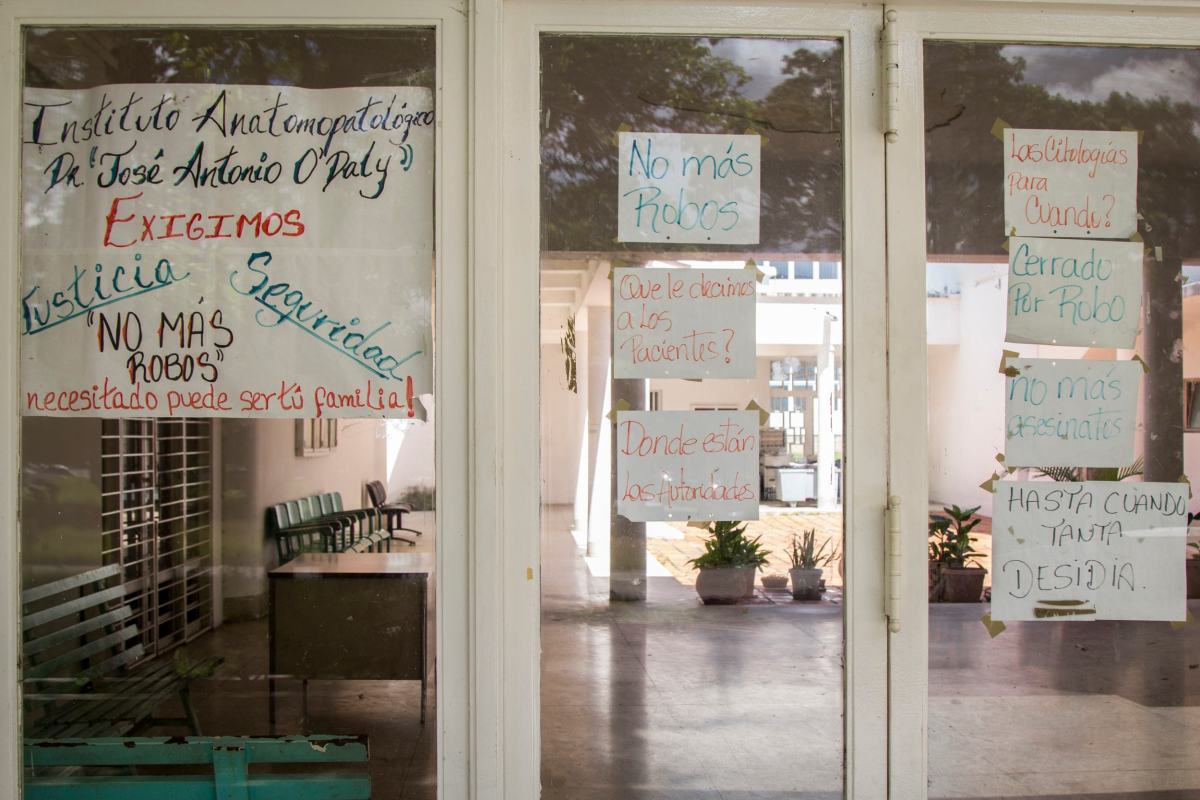 Instituto Anatomopatológico
Dr. "José Antonio O'Daly"
EXIGIMOS
Justicia Seguridad
"NO MÁS
ROBOS"
necesitado puede ser tú familia!
No más
Robos
Que le decimos
a Los
Pacientes?
Donde están
Las Autoridades
Las Citologías
para
Cuando?
Cerrado
Por Robo
no más
asesinatos
HASTA CUANDO
TANTA
DESIDIA.